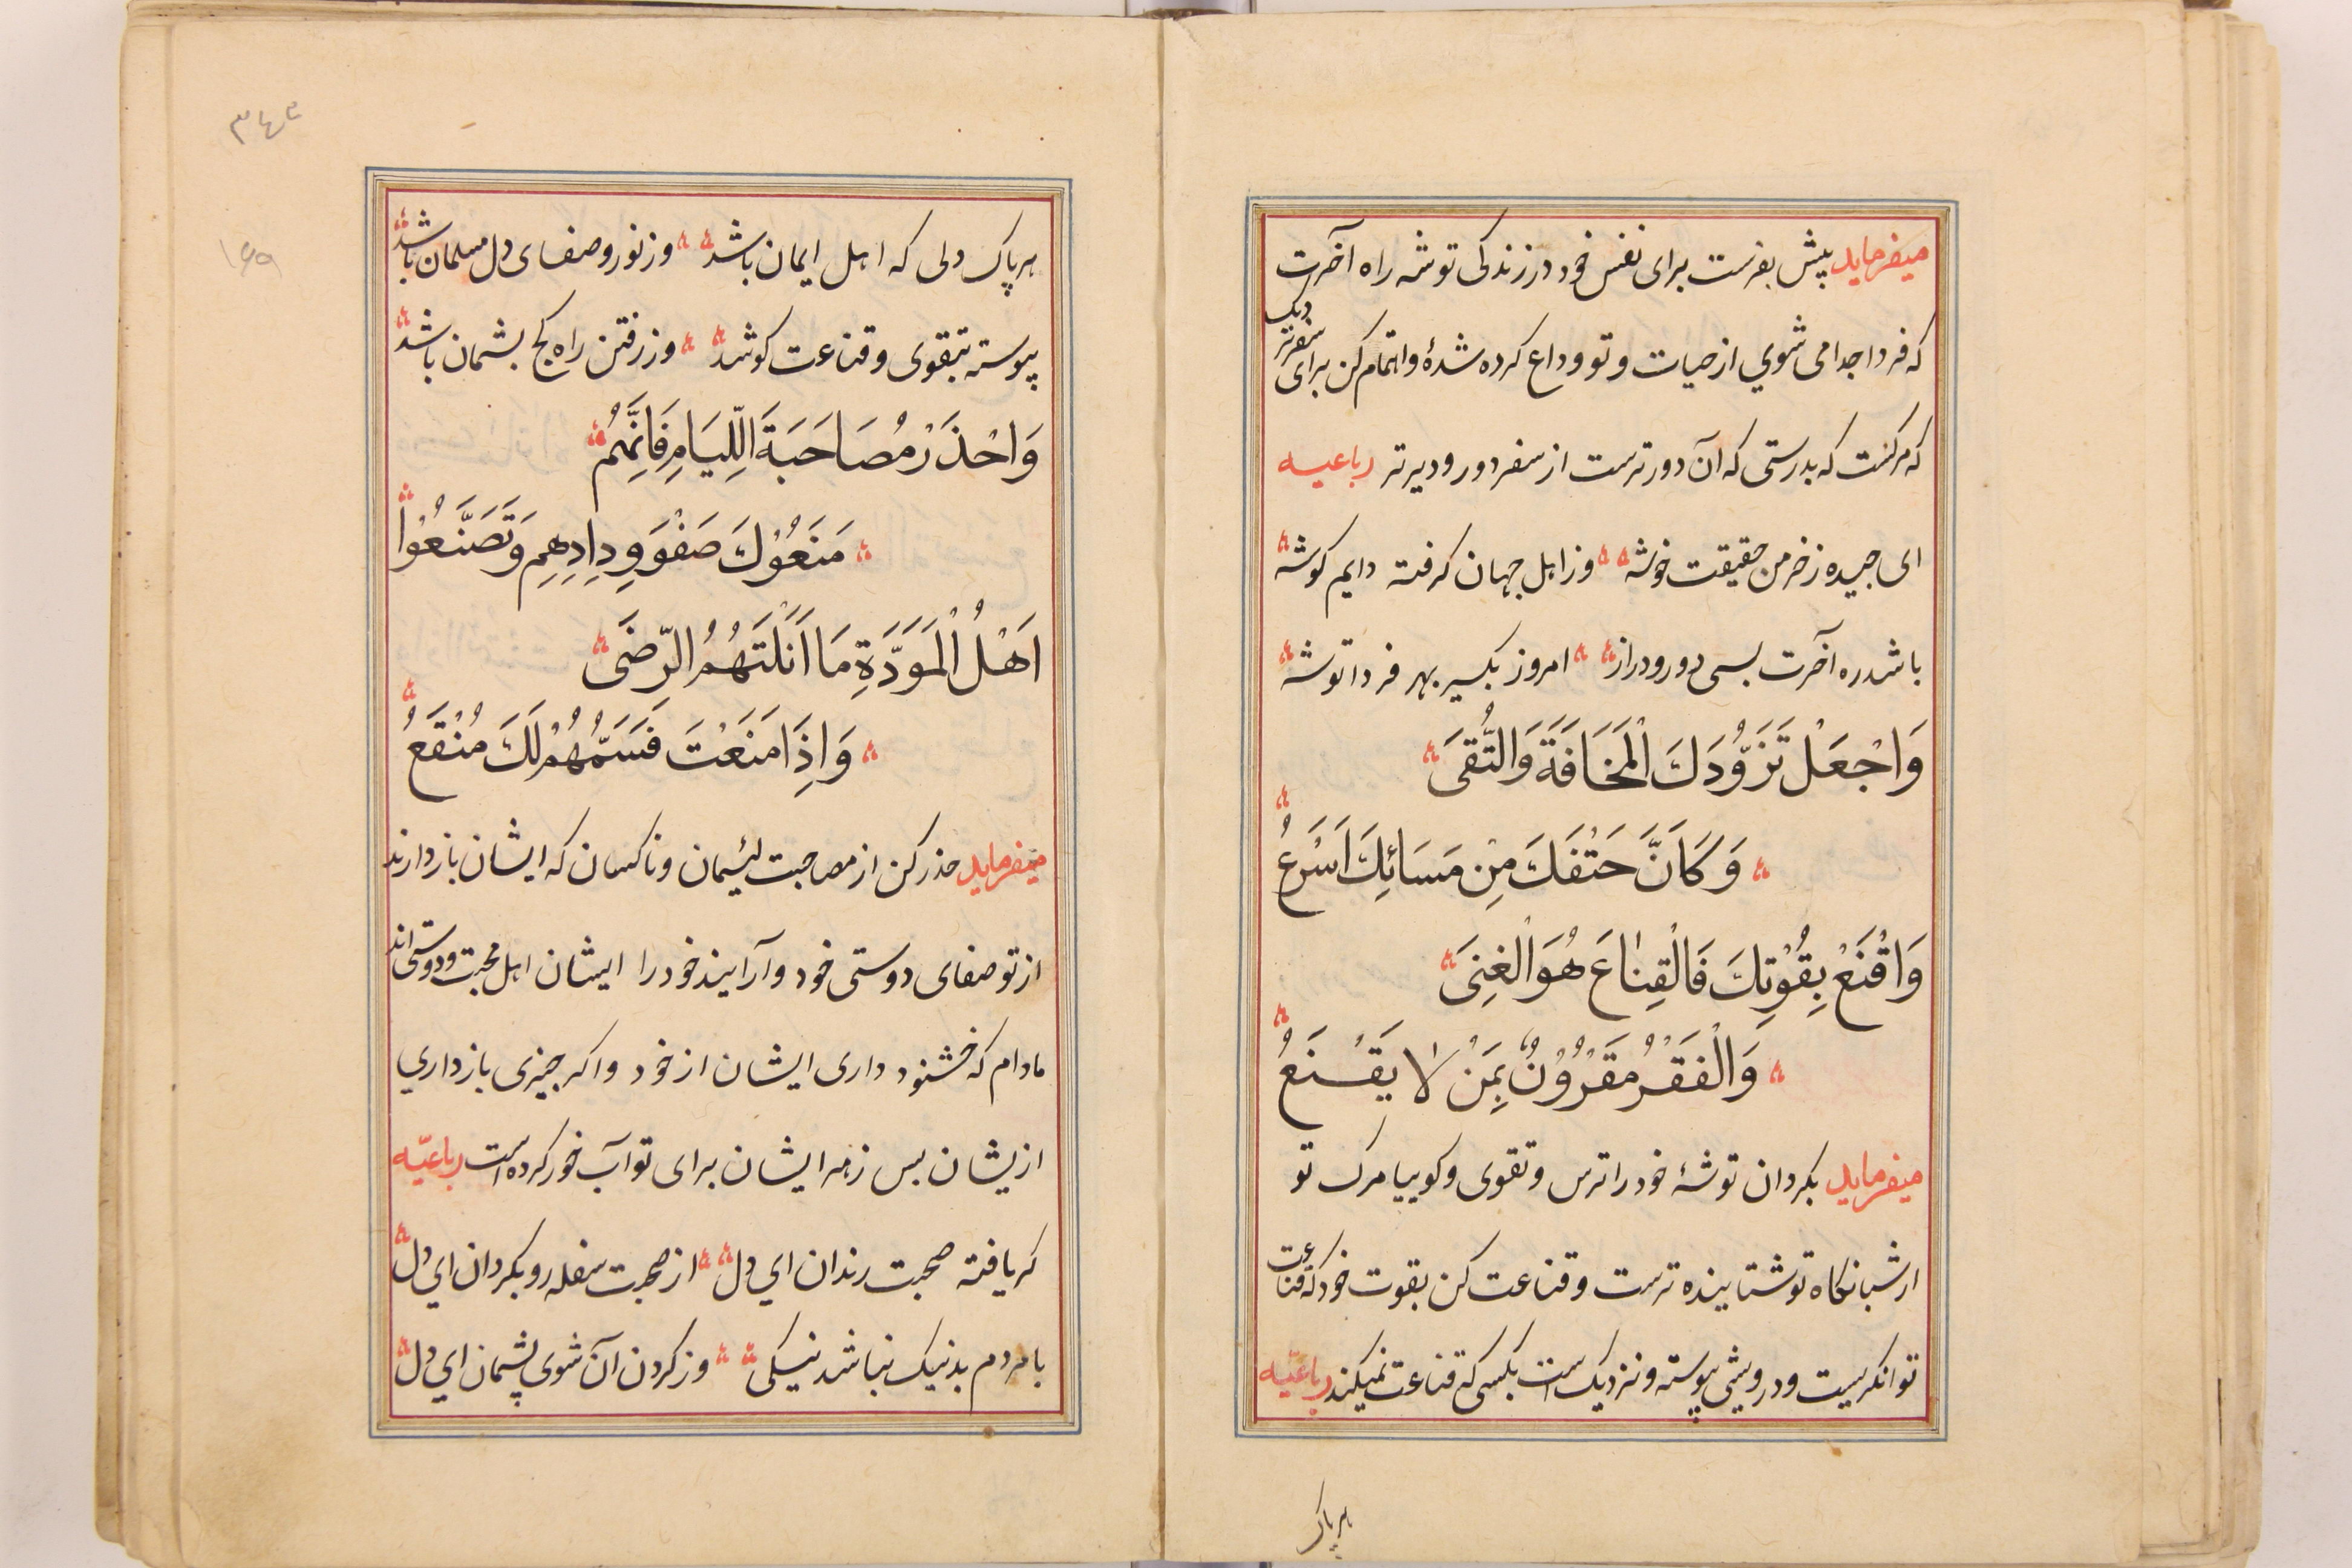 میفرماید پیش بفرست برای نفس خود در زندکی توشه راه آخرت
که فردا جدا می شوي از حیات و تو وداع کرده شدهٔ واهتمام کن برای سفر نزدیک
که مرکست که بدرستی که آن دورترست از سفر دور و دیرتر رباعیه
ای چیده ز خرمن حقیقت خوشه وز اهل جهان کرفته دایم کوشه
باشد ره آخرت بسی دور و دراز امروز بکیر بهر فردا توشه
وَاجْعَلْ تَزَوُّدَكَ الْمَخَافَةَ وَالتُّقىَ
وَكَاَنَّ حَتْفَكَ مِنْ مَسَائِكَ اَسْرَعُ
وَاقْنَعْ بِقُوْتِكَ فَالْقِنٰاعَ هُوَ الْغِنىَ
وَالْفَقْرُ مَقْرُوْنٌ بِمَنْ لاٰ يَقْنَعُ
میفرماید بکردان توشهٔ خود را ترس و تقوی وکوییا مرک تو
از شبانکاه تو شتابنده ترست وقناعت کن بقوت خود که قناعت
توانکریست ودرویشی پیوسته ونزدیک است بکسی که قناعت نمیکند رباعیّه
هر پاک
٣٤٣
۱۶۹
هر پاک دلی که اهل ایمان باشد وز نور وصفای دل مسلمان باشد
پیوسته بتقوی وقناعت کوشد وز رفتن راه کج پشیمان باشد
وَاحْذَرْ مُصَاحَبَةَ اللِّيَامِ فَاِنَّهُمْ
مَنَعُوْكَ صَفْوَ وِدِادِهِمِ وَتَصَنَّعُوْا
اَهْلُ الْمَوَدَّةِ مَا اَنَلْتَهُمُ الرِّضىَ
وَاِذَا مَنَعْتَ فَسَمُّهُمْ لَكَ مُنْقَعُ
میفرماید حذر کن از مصاحبت لئیمان وناکسان که ایشان باز دارند
از تو صفای دوستی خود وآرایند خود را ایشان اهل محبت ودوستی اند
مادام که خشنود داری ایشان از خود واکر چیزی باز داري
ازیشان پس زهر ایشان برای تو آب خور کرده است رباعیّه
کر یافته صحبت رندان اي دل از صحبت سفله رو بکردان اي دل
با مردم بد نیک نباشد نیکی وز کردن آن شوی پشیمان اي دل